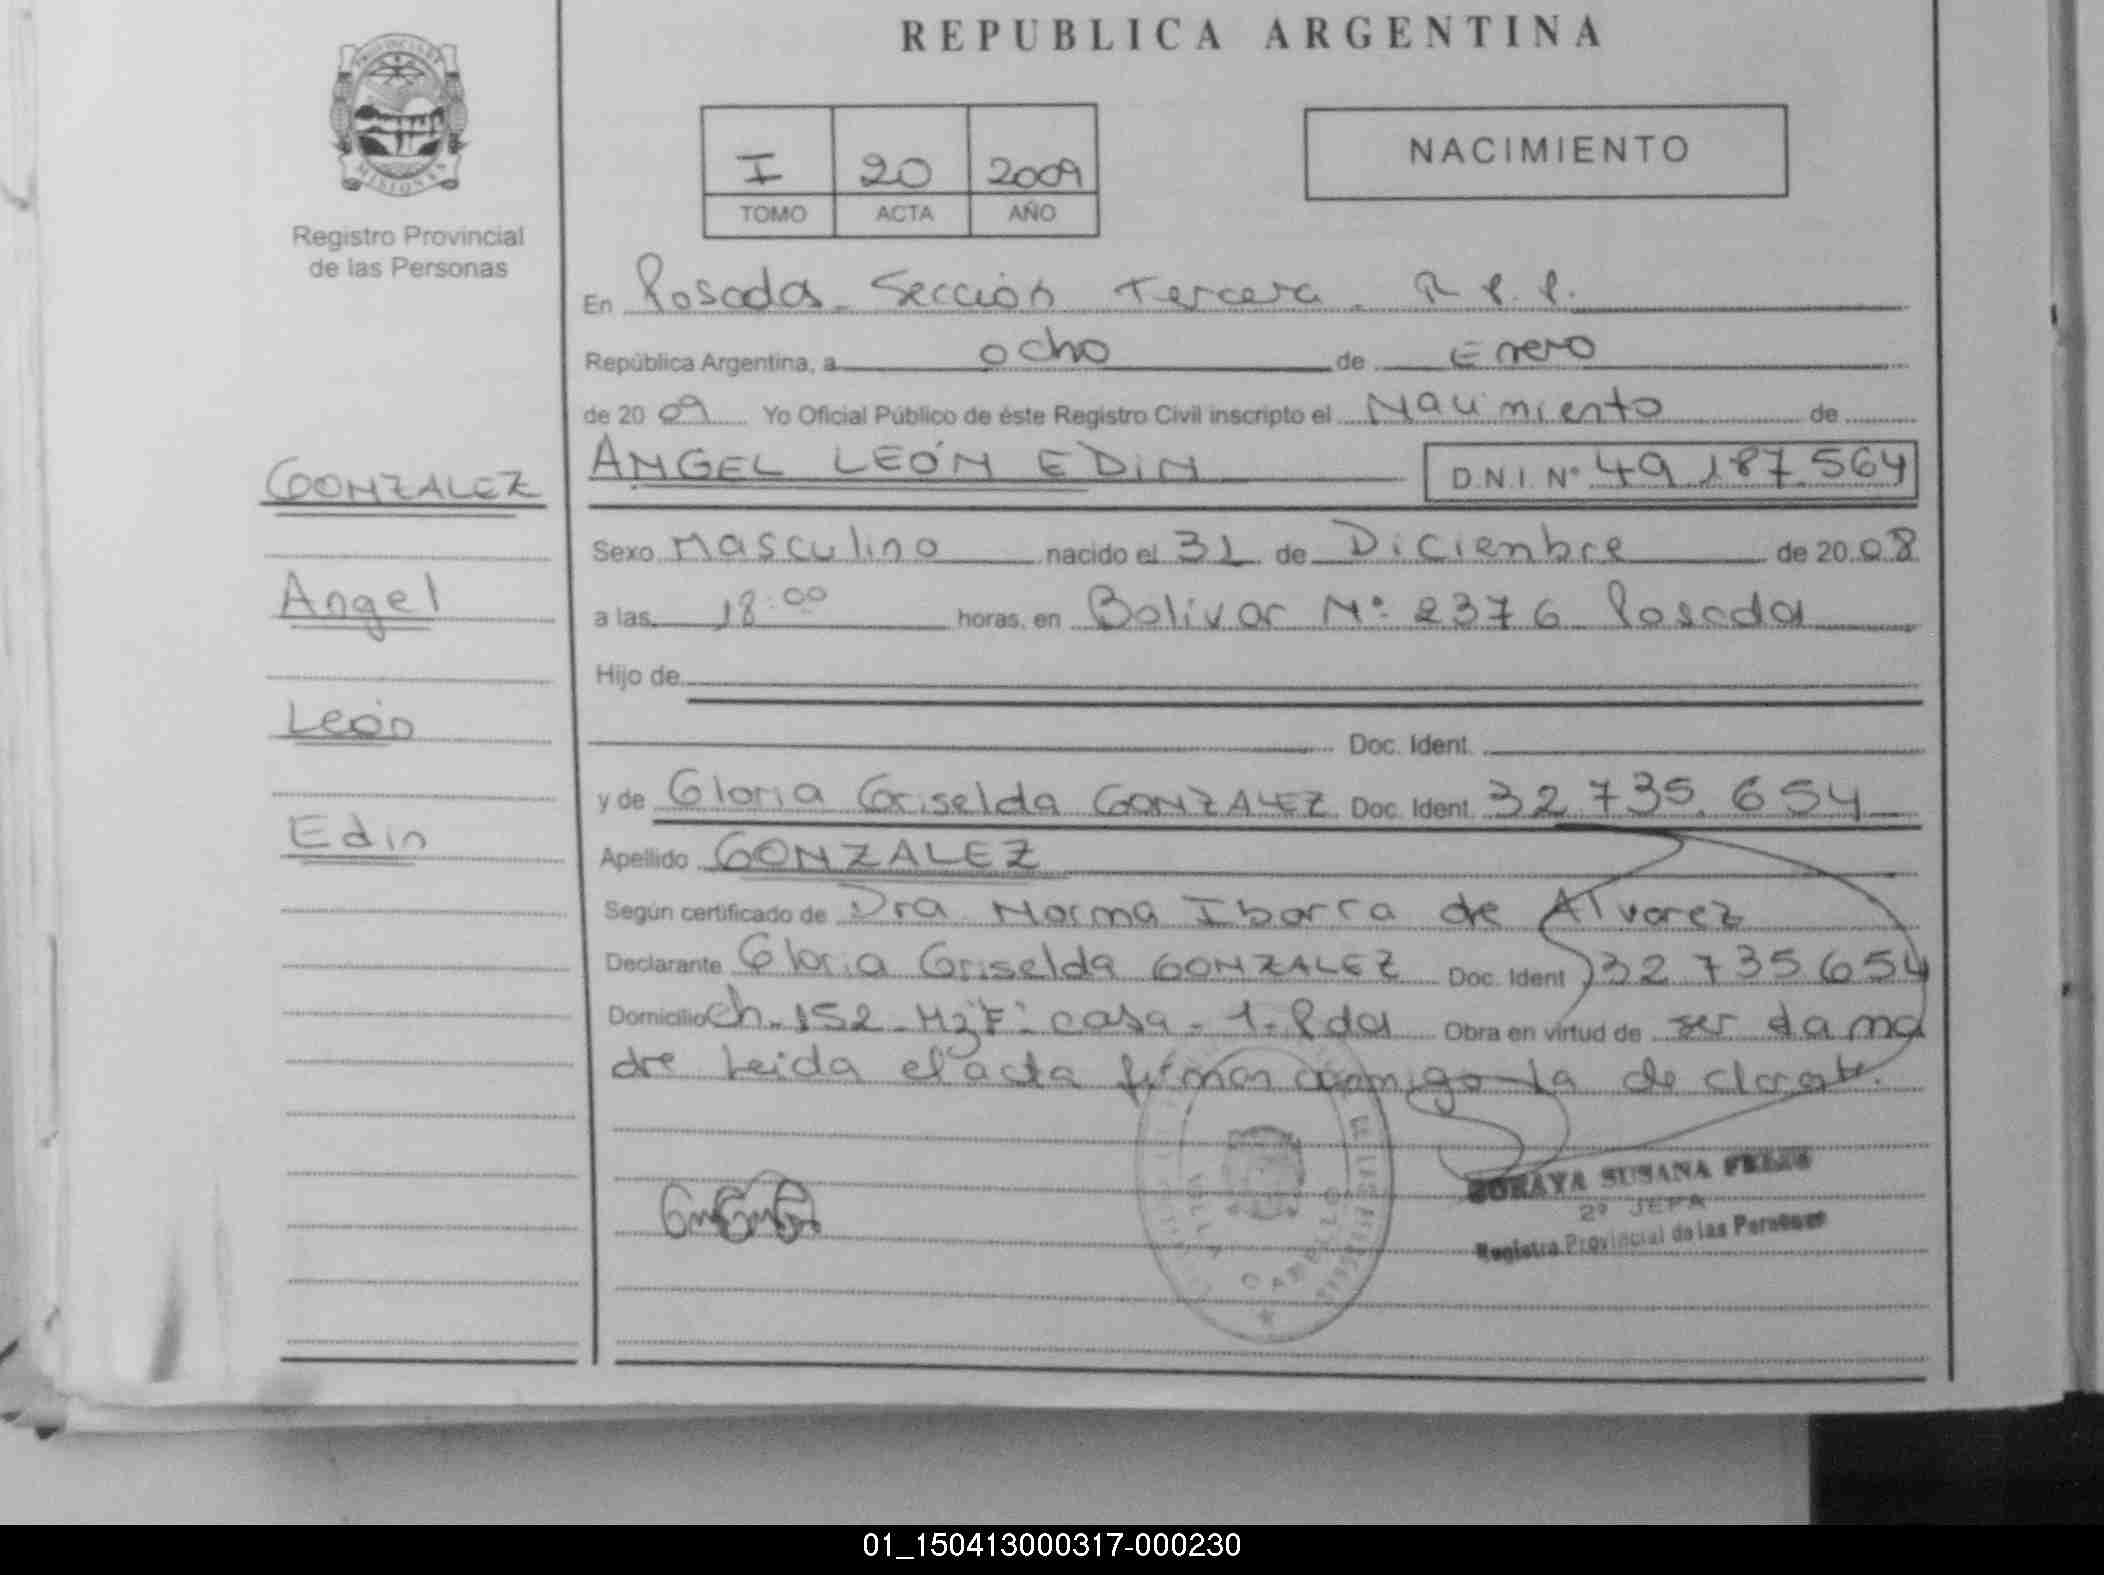 REPUBLICA ARGENTINA
PROVINCIA DE
MISIONES
Registro Provincial
de las Personas
I 20 2009
TOMO ACTA AÑO
NACIMIENTO
En Posadas Sección Tercera R.P.P.
República Argentina, a ocho de Enero
de 20 09 Yo Oficial Público de éste Registro Civil inscripto el Nacimiento de
GONZALEZ
ANGEL LEÓN EDIN D.N.I. Nº 49.187.564
Sexo Masculino nacido el 31 de Diciembre de 20 08
Angel
a las 18:00 horas, en Bolívar Nº: 2376 Posadas
Hijo de
León
Doc. Ident.
y de Gloria Griselda GONZALEZ Doc. Ident. 32.735.654
Edin
Apellido GONZALEZ
Según certificado de Dra Norma Ibarra de Alvarez
Declarante Gloria Griselda GONZALEZ Doc. Ident 32735654
Domicilio Ch. 152 Mz "F" casa 1 Pdas Obra en virtud de ser la ma
dre Leida el acta firman conmigo la declarante.
SORAYA SUSANA
2º JEFA
Registro Provincial de las Personas
VILLA CABELLO
01_150413000317-000230